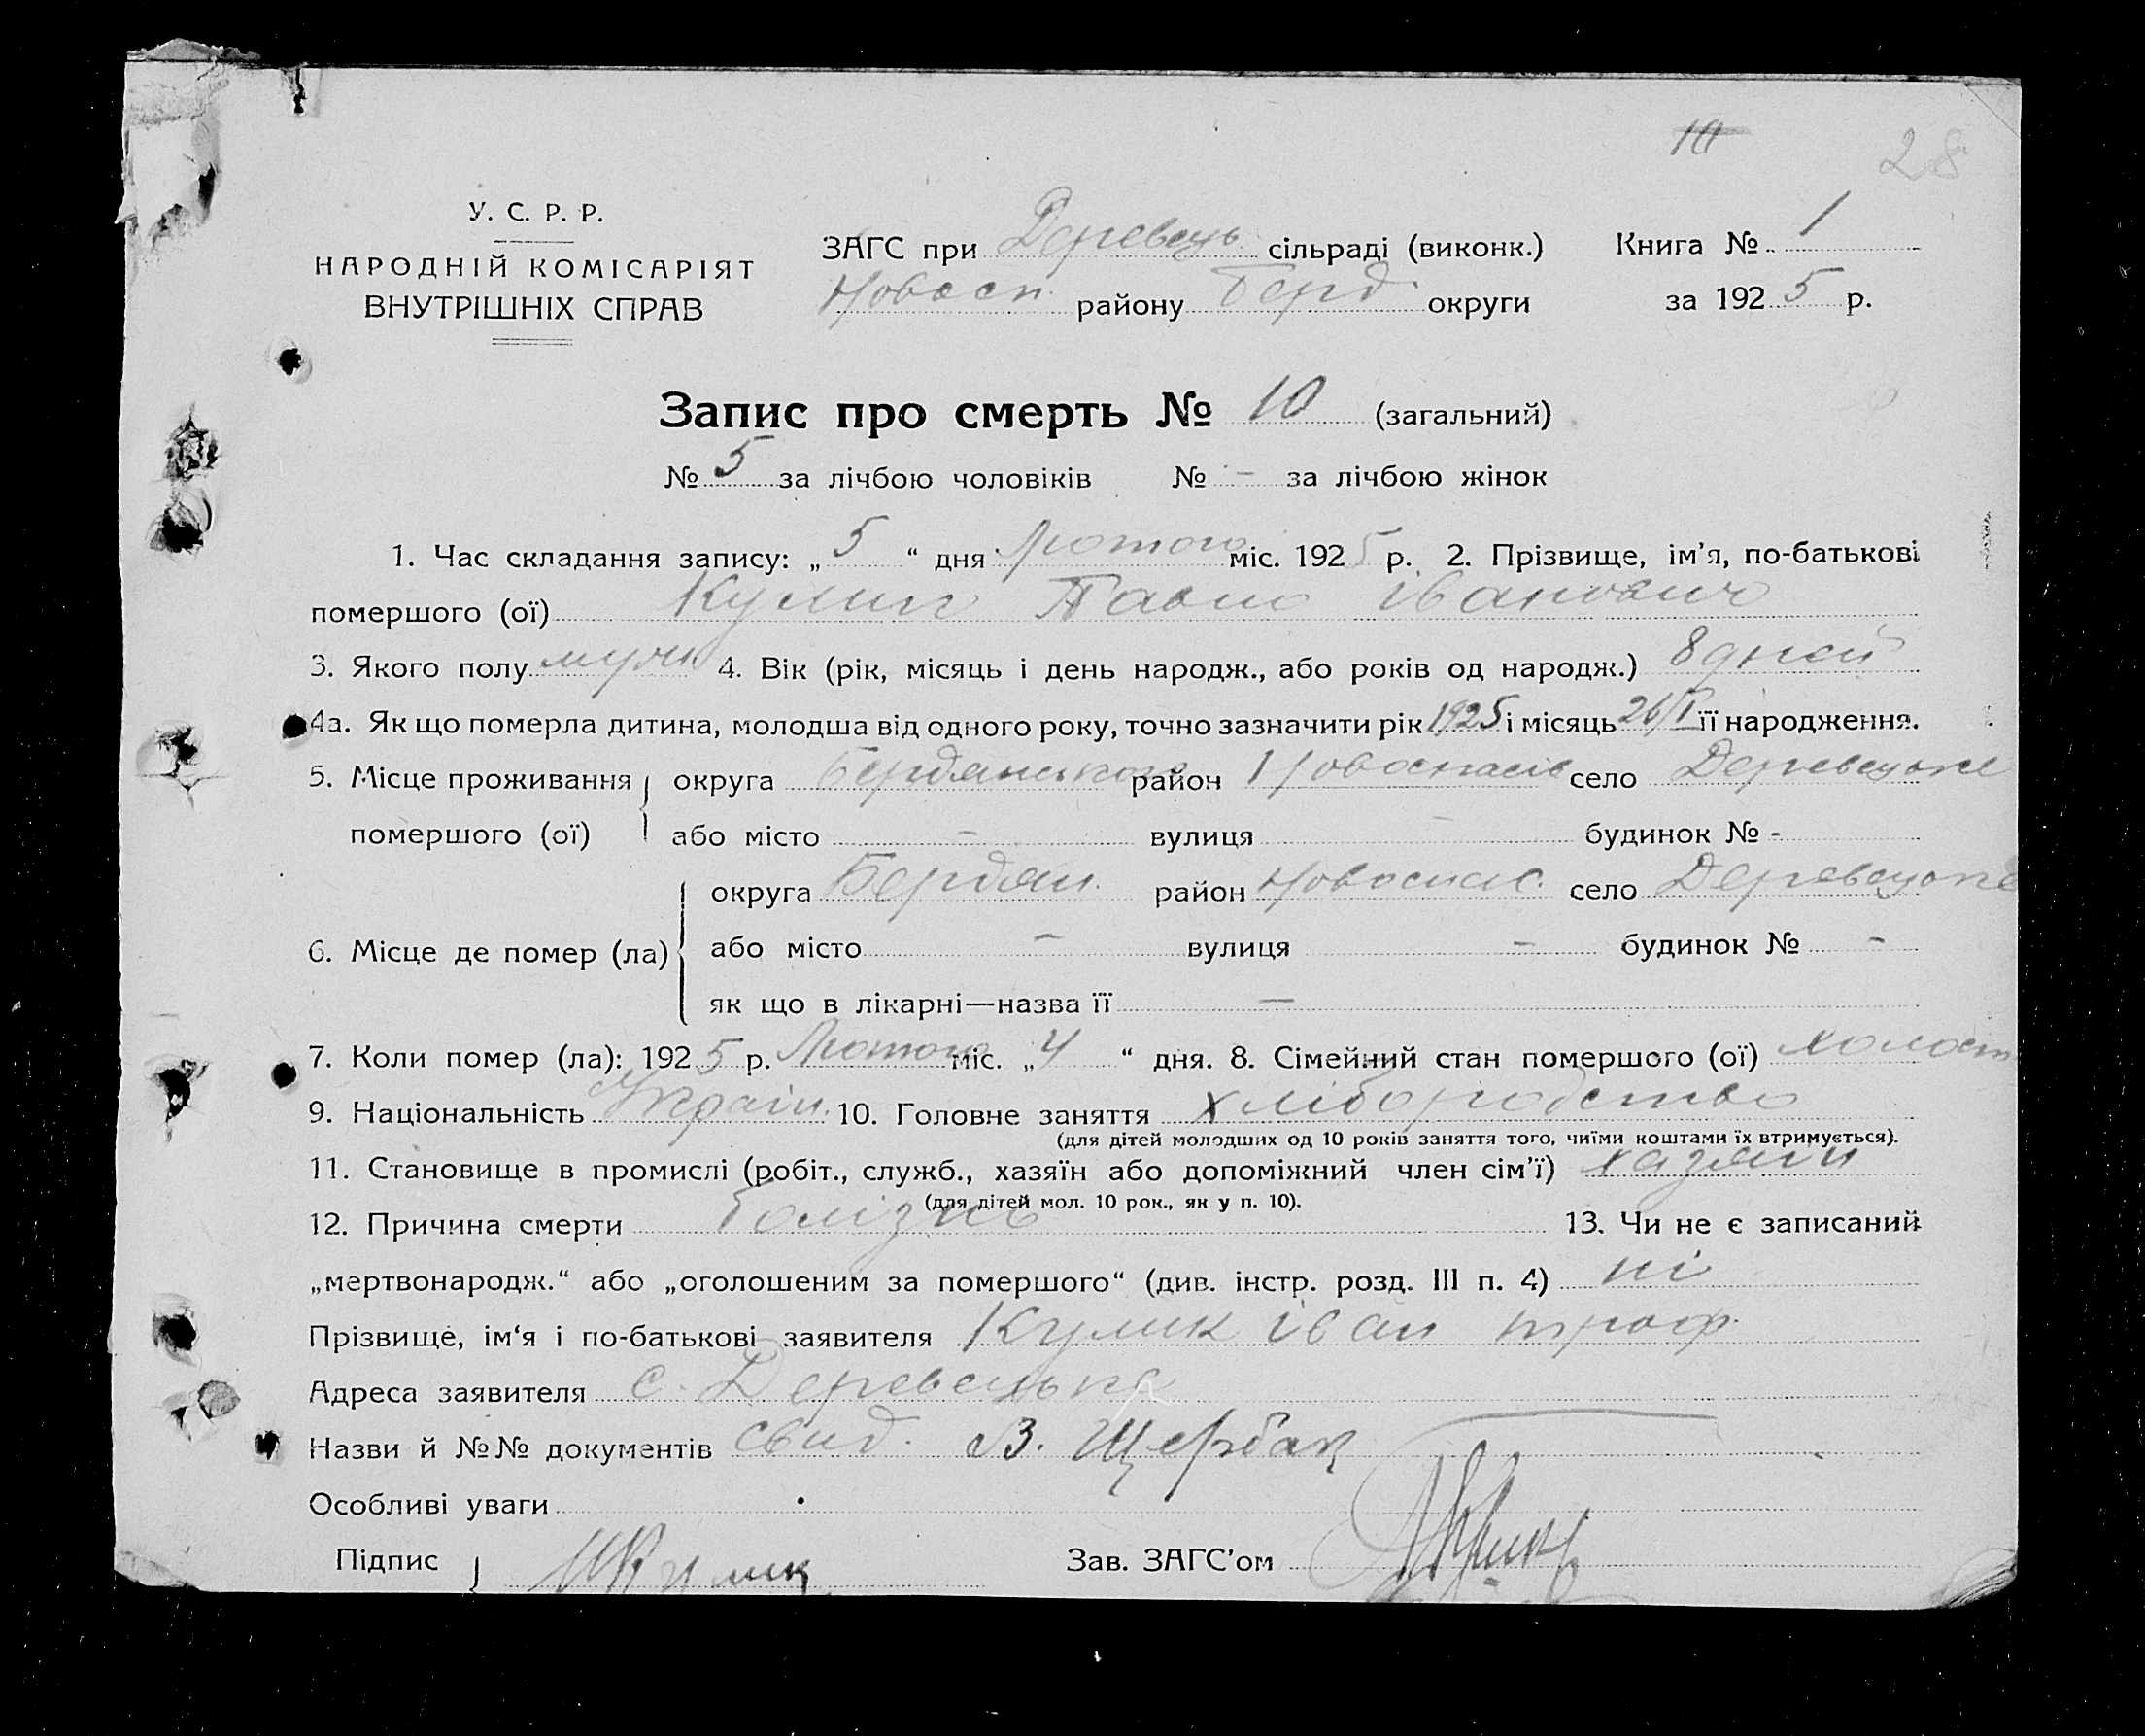 10 28
У. С. Р. Р.
НАРОДНІЙ КОМІСАРІЯТ
ВНУТРІШНІХ СПРАВ
ЗАГС при Деревець сільраді (виконк.)
Новосп. району Берд. округи
Книга № 1
за 1925 р.
Запис про смерть № 10 (загальний)
№ 5 за лічбою чоловіків № - за лічбою жінок
1. Час складання запису: „5“ дня Лютого міс. 1925 р. 2. Прізвище, ім'я, по-батькові
помершого (ої) Кулик Павло Іванович
3. Якого полу муж 4. Вік (рік, місяць і день народж., або років од народж.) 8 дней
4а. Як що померла дитина, молодша від одного року, точно зазначити рік 1925 і місяць 26/I її народження.
5. Місце проживання округа Бердянського район Новоспасів село Деревецьке
помершого (ої) або місто - вулиця - будинок № -
округа Бердян. район Новоспас. село Деревецьке
6. Місце де помер (ла) або місто - вулиця - будинок № -
як що в лікарні—назва її —
7. Коли помер (ла): 1925 р. Лютого міс. „4“ дня. 8. Сімейний стан помершого (ої) холост
9. Національність Україн. 10. Головне заняття хліборобство
(для дітей молодших од 10 років заняття того, чиїми коштами їх втримується).
11. Становище в промислі (робіт., служб., хазяїн або допоміжний член сім'ї) хазяїн
(для дітей мол. 10 рок., як у п. 10).
12. Причина смерти болізнь 13. Чи не є записаний
„мертвонародж.“ або „оголошеним за помершого“ (див. інстр. розд. III п. 4) ні
Прізвище, ім‘я і по-батькові заявителя Кулик Іван троф.
Адреса заявителя с. Деревецьке
Назви й №№ документів свид. В. Щербак
Особливі уваги
Підпис ИКулик Зав. ЗАГС'ом